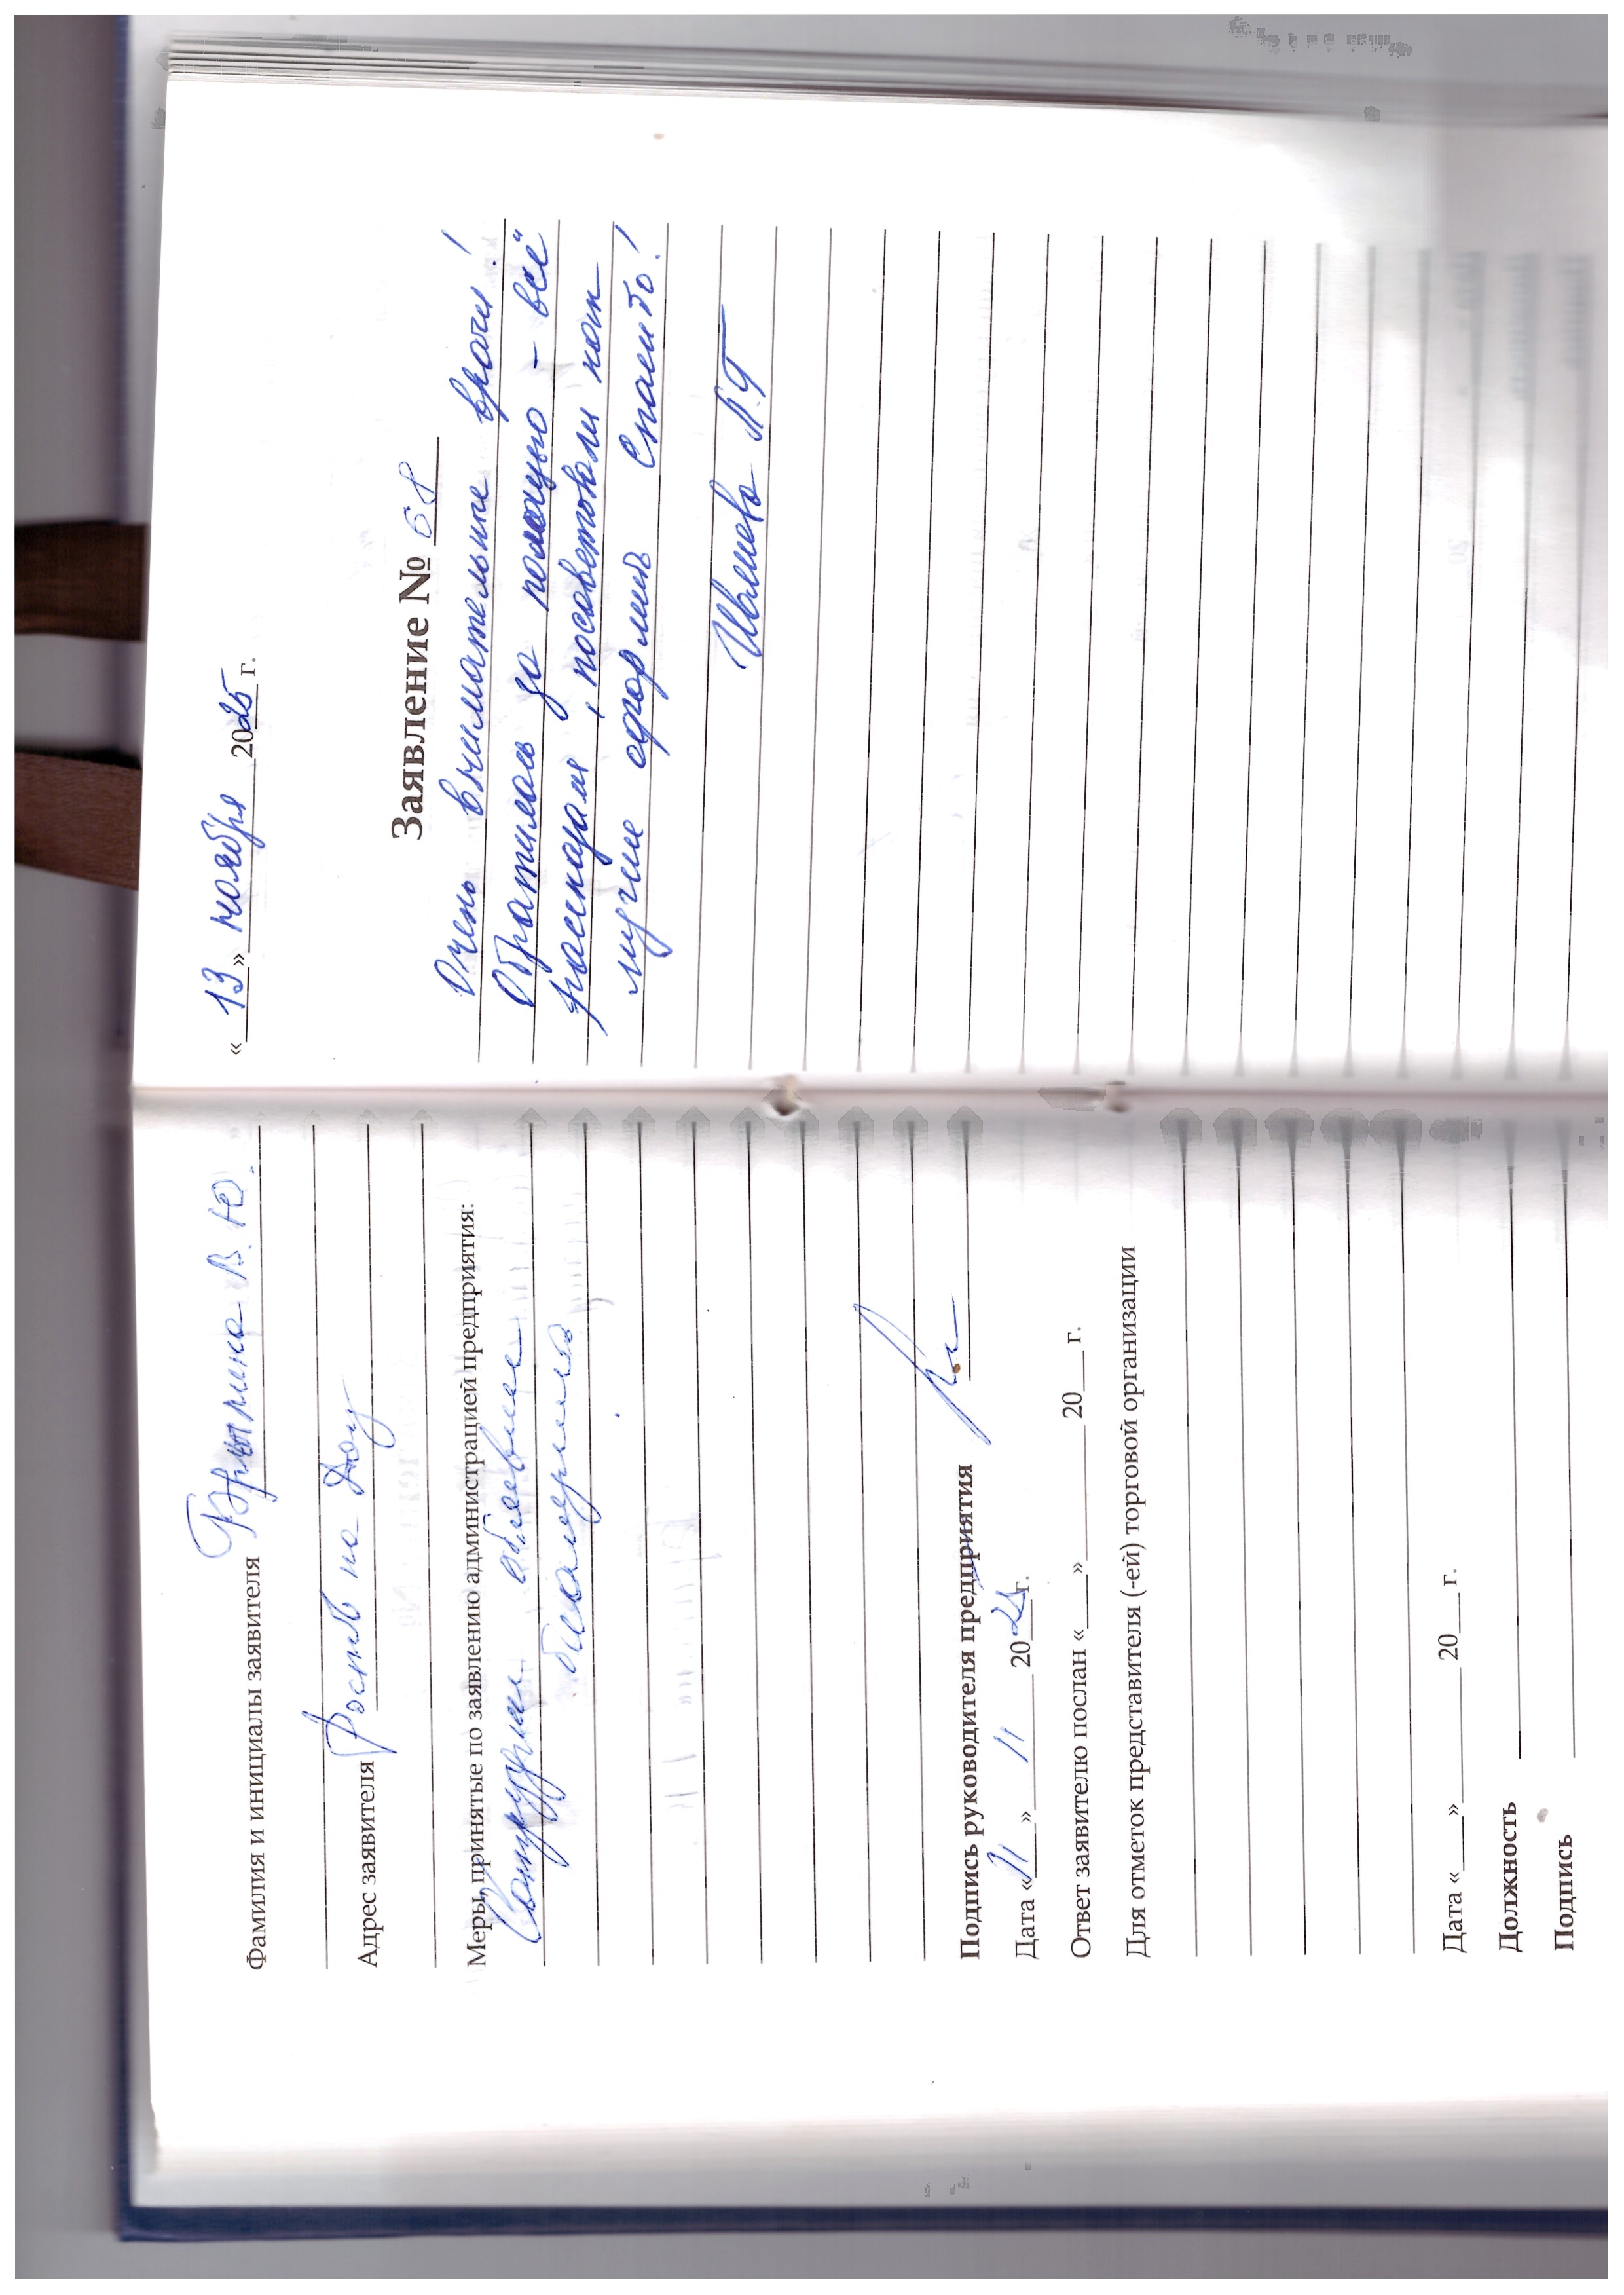 Фамилия и инициалы заявителя
Адрес заявителя Ростов на Дону
Меры, принятые по заявлению администрацией предприятия:
Сотруднику объявлена
благодарность
Подпись руководителя предприятия
Дата «11» 11 2025г.
Ответ заявителю послан «___»__________20___г.
Для отметок представителя (-ей) торговой организации
Дата «___»__________20___г.
Должность
Подпись
« 13 » ноября 2025 г.
Заявление № 68
Очень внимательные врачи!
Обратилась за помощью – всё
рассказали, посоветовали как
лучше оформить Спасибо!